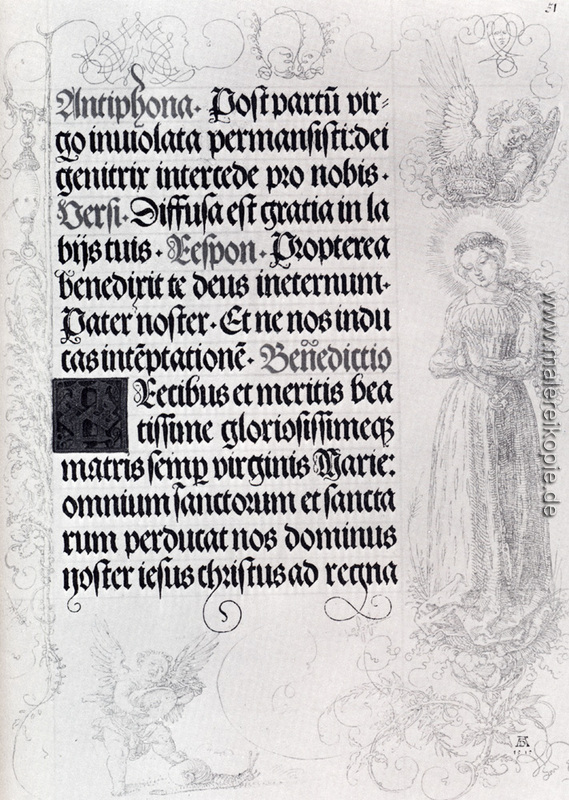 51
Antiphona. Post partū vir-
go inuiolata permansisti: dei
genitrix intercede pro nobis.
Versi. Diffusa est gratia in la
bijs tuis. Respon. Propterea
benedixit te deus ineternum.
Pater noster. Et ne nos indu
cas intēptationē. Beñedictio
Recibus et meritis bea
tissime gloriosissimeqꝫ
matris semꝑ virginis Marie:
omnium sanctorum et sancta
rum perducat nos dominus
noster iesus christus ad regna
www.malereikopie.de